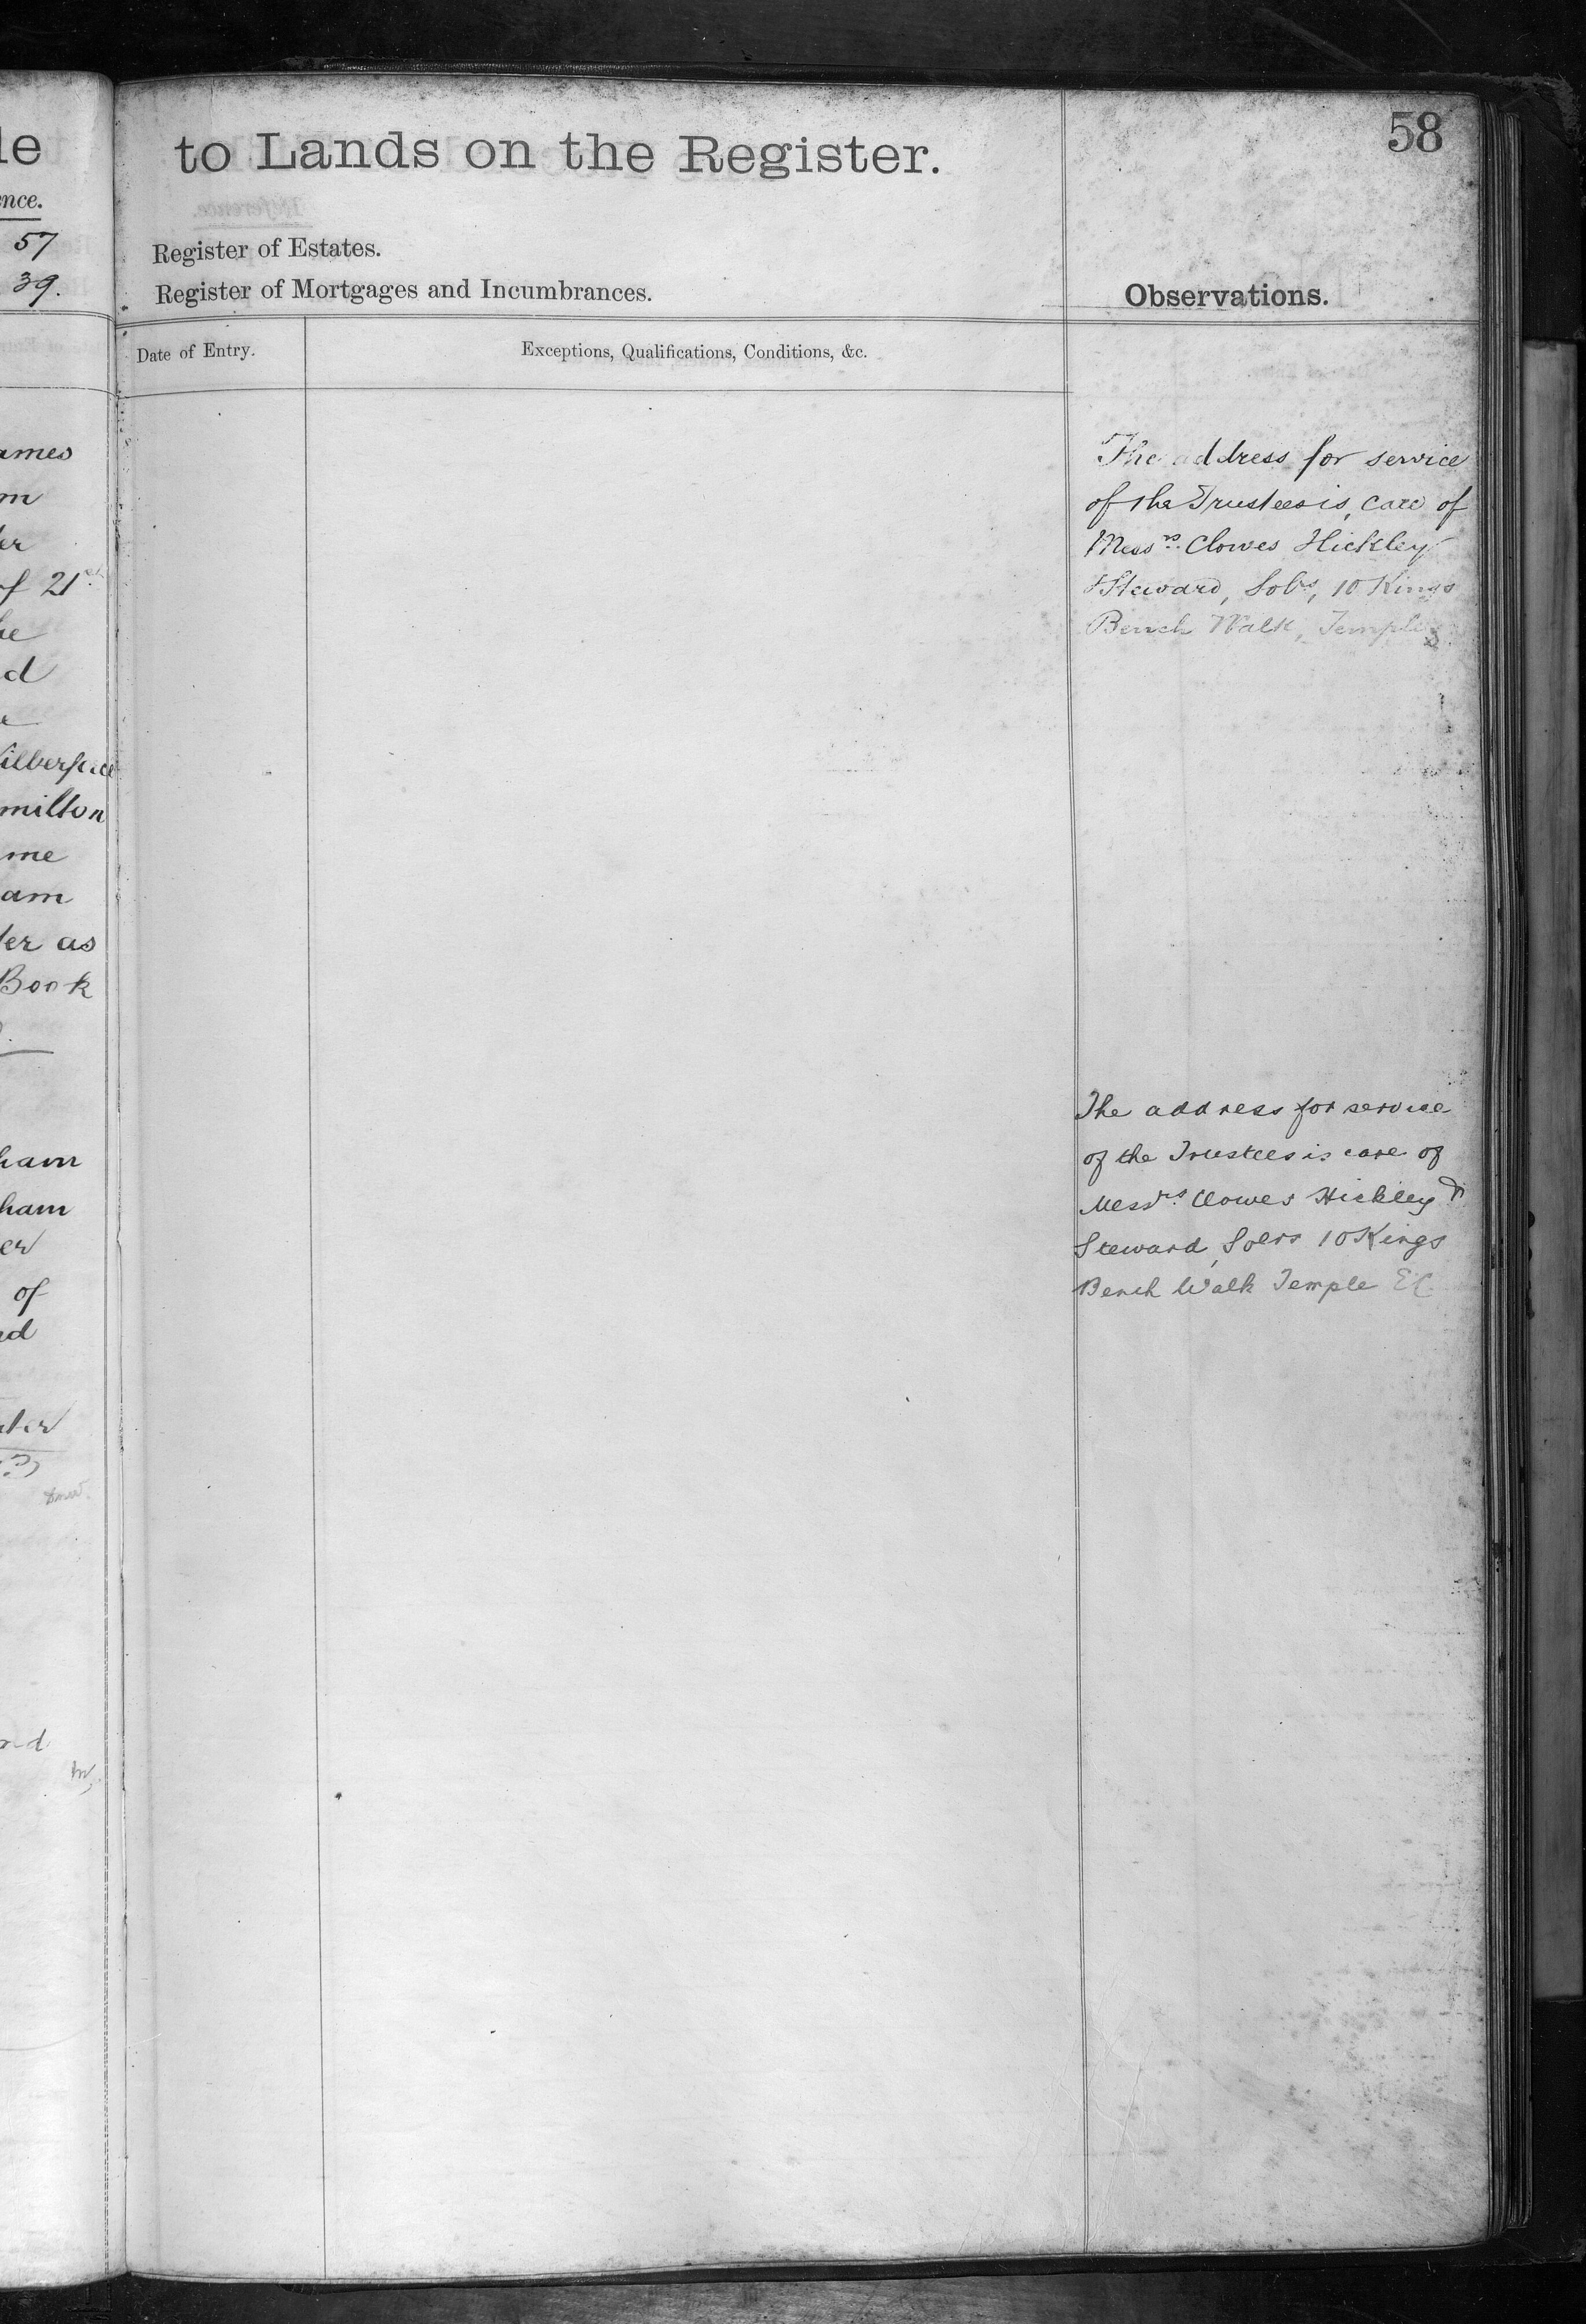 le
ence.
57
39.
ames
m
er
of 21st
he
d
e
ilberforce
milton
me
am
ter as
Book
ham
ham
er
of
nd
ter
nd
to Lands on the Register.
58
Register of Estates.
Register of Mortgages and Incumbrances.
Observations.
Date of Entry.
Exceptions, Qualifications, Conditions, &c.
The address for service
of the Trustees is, care of
Messrs. Clowes Hickley
& Steward, Solrs, 10 Kings
Bench Walk, Temple
The address for service
of the Trustees is care of
Messrs. Clowes Hickley &
Steward, Solrs 10 Kings
Bench Walk Temple E.C.